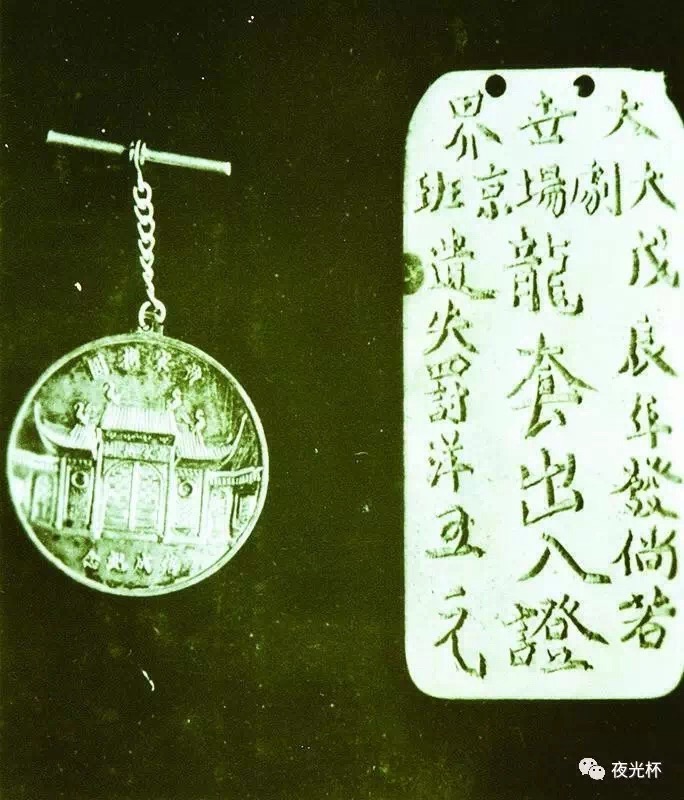 大世界
大劇場京班
茂辰年發倘若
龍套出入證
遺失罰洋五元
落成紀念
夜光杯